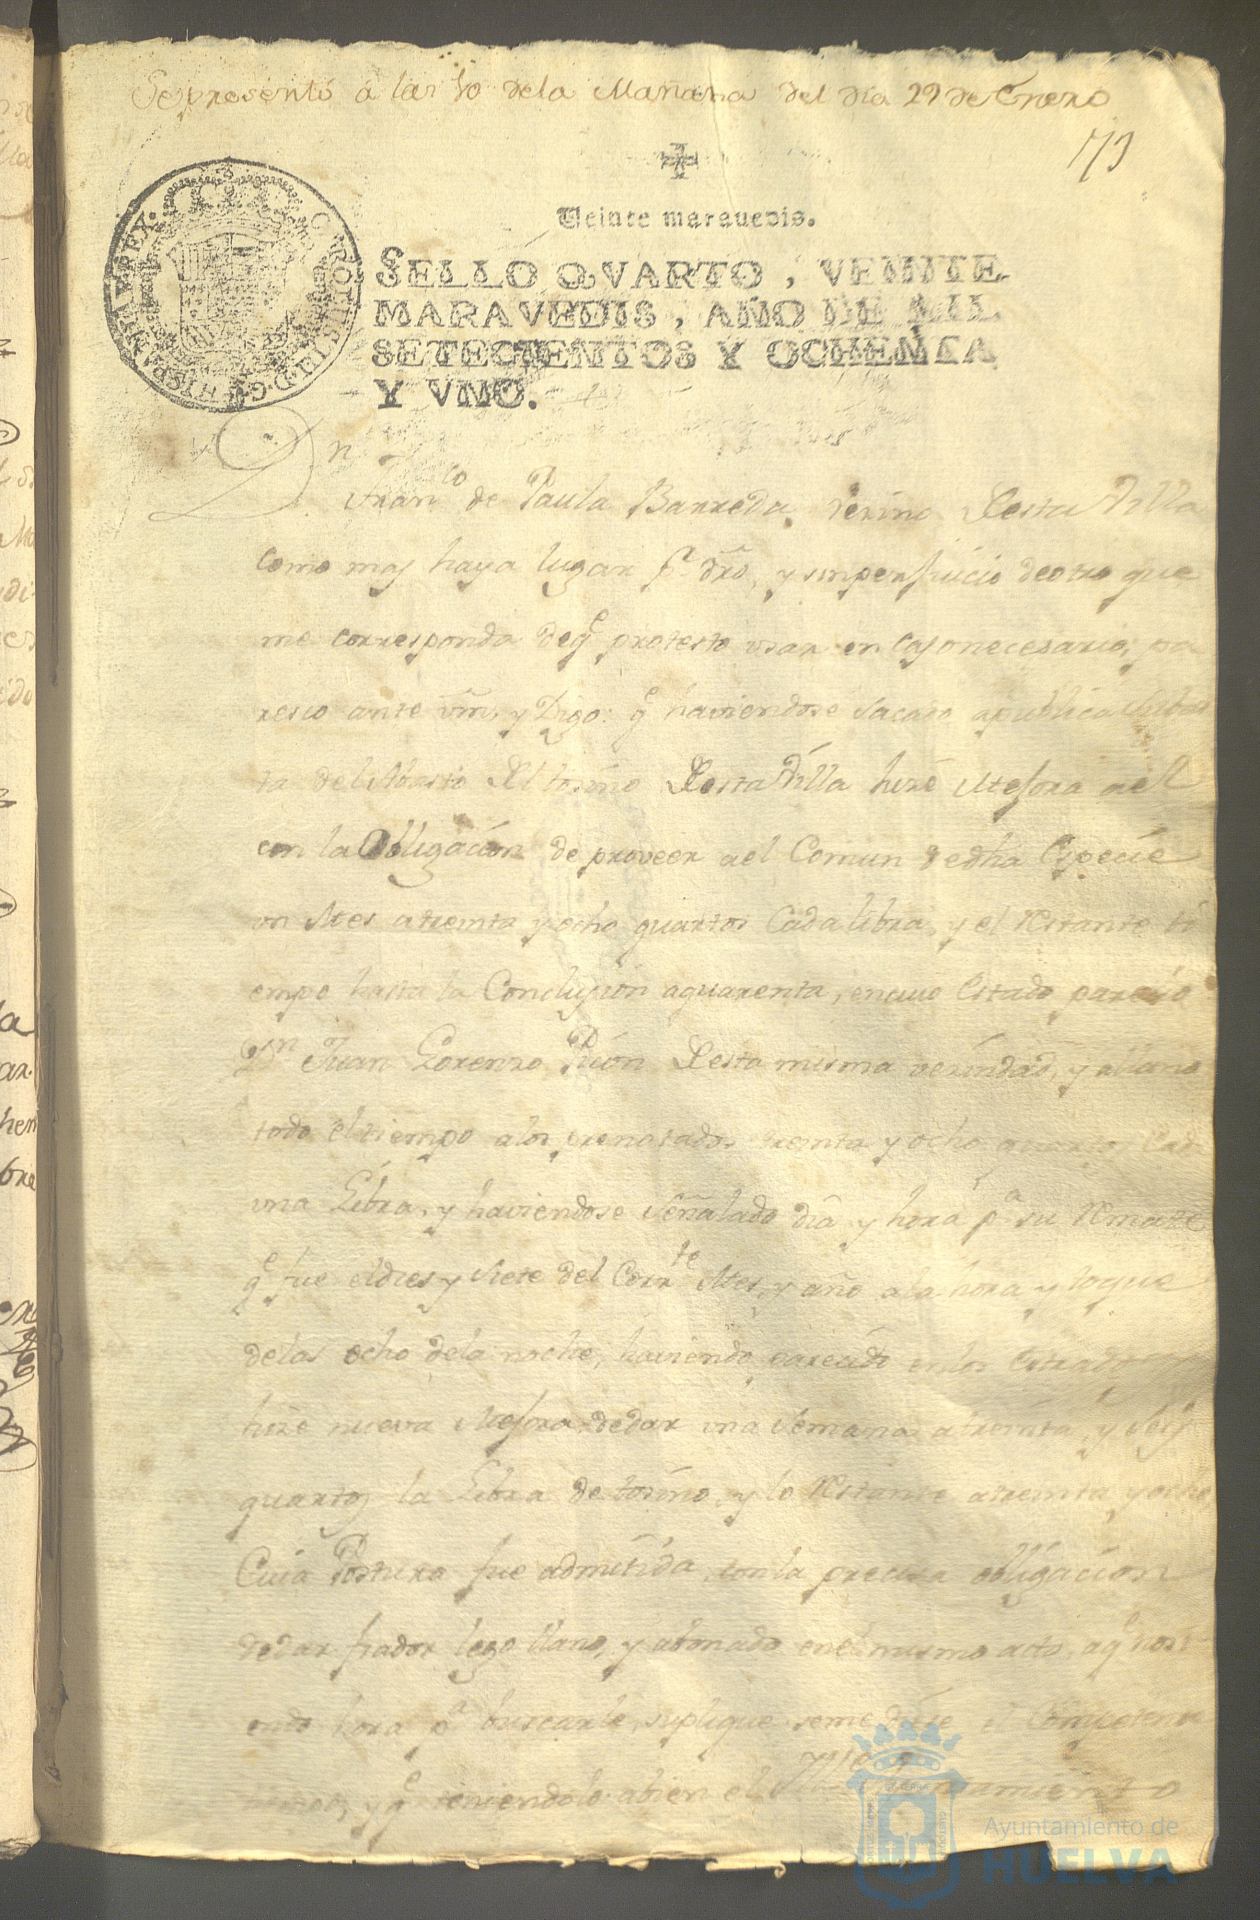 Se presentó á las 10 dela Mañana del dia 29 de Enero
179
Veinte marauedis.
SELLO QVARTO, VEINTE
MARAVEDIS, AÑO DE MIL
SETECIENTOS Y OCHENTA
Y VNO.
CAROLUS III D. G. HISP. ET IND. REX.
Dn
Franco de Paula Barreda, Vezino Desta Villa
como mas haya lugar pr dro, y sin perjuicio de otro que
me corresponda de qe protesto usar en caso necesario, pa
resco ante vm, y Digo: qe haviendose sacado a publica subas
ta del Abasto Del tosino Desta Villa hize Mejora ael
con la Obligación de proveer ael Comun de dha Especie
un Mes a treinta y ocho quartos Cada libra, y el restante ti
empo hasta la Conclusion a quarenta, en cuio Estado parecio
Dn Juan Lorenzo Desta misma vezindad, y allano
todo el tiempo a los prenotados treinta y ocho quartos Cada
una Libra, y haviendose señalado dia y hora pa su remate
qe fue el dies y siete del Corrte Mes, y año a la hora y toque
de las ocho de la noche, haviendo parecido en los Estrados
hize nueva Mejora de dar una semana a treinta y seis
quartos la Libra de tosino, y lo restante a treinta y ocho
Cuia Postura fue admitida, con la precisa obligacion
de dar fiador lego llano, y abonado en el mismo acto, a qe no si
endo hora pa buscarle, suplique se me diese el Competente
y qe teniendolo abien el Ille Ayuntamiento
Ayuntamiento de
HUELVA